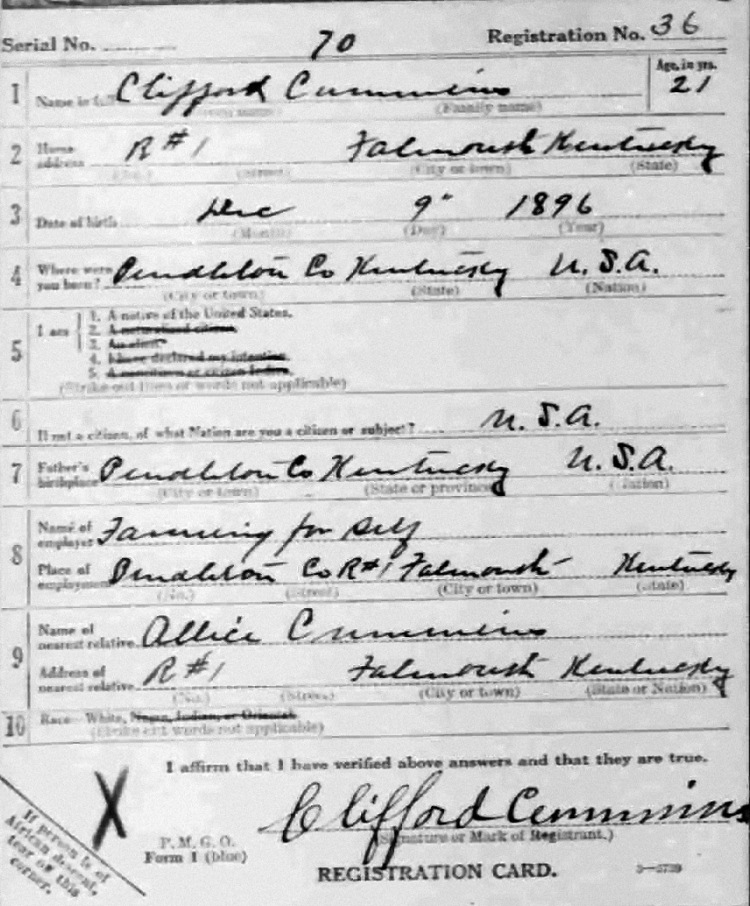 Serial No. 70 Registration No. 36
1 Name in full Clifford Cummins Age, in yrs. 21
(Family name)
2 Home address R #1 Falmouth Kentucky
(No.) (Street) (City or town) (State)
3 Date of birth Dec 9" 1896
(Month) (Day) (Year)
4 Where were you born? Pendleton Co Kentucky U.S.A.
(City or town) (State) (Nation)
5 I am
1. A native of the United States.
2. A naturalized citizen.
3. An alien.
4. I have declared my intention.
5. A noncitizen or citizen Indian.
(Strike out lines or words not applicable)
6 If not a citizen, of what Nation are you a citizen or subject? U.S.A.
7 Father's birthplace Pendleton Co Kentucky U.S.A.
(City or town) (State or province) (Nation)
8 Name of employer Farming for self
Place of employment Pendleton Co R#1 Falmouth Kentucky
(No.) (Street) (City or town) (State)
9 Name of nearest relative Allice Cummins
Address of nearest relative R #1 Falmouth Kentucky
(No.) (Street) (City or town) (State or Nation)
10 Race—White, Negro, Indian, or Oriental
(Strike out words not applicable)
I affirm that I have verified above answers and that they are true.
X
Clifford Cummins
P. M. G. O.
Form 1 (blue)
(Signature or Mark of Registrant.)
REGISTRATION CARD.
3—5739
If person is of
African descent,
tear off this
corner.